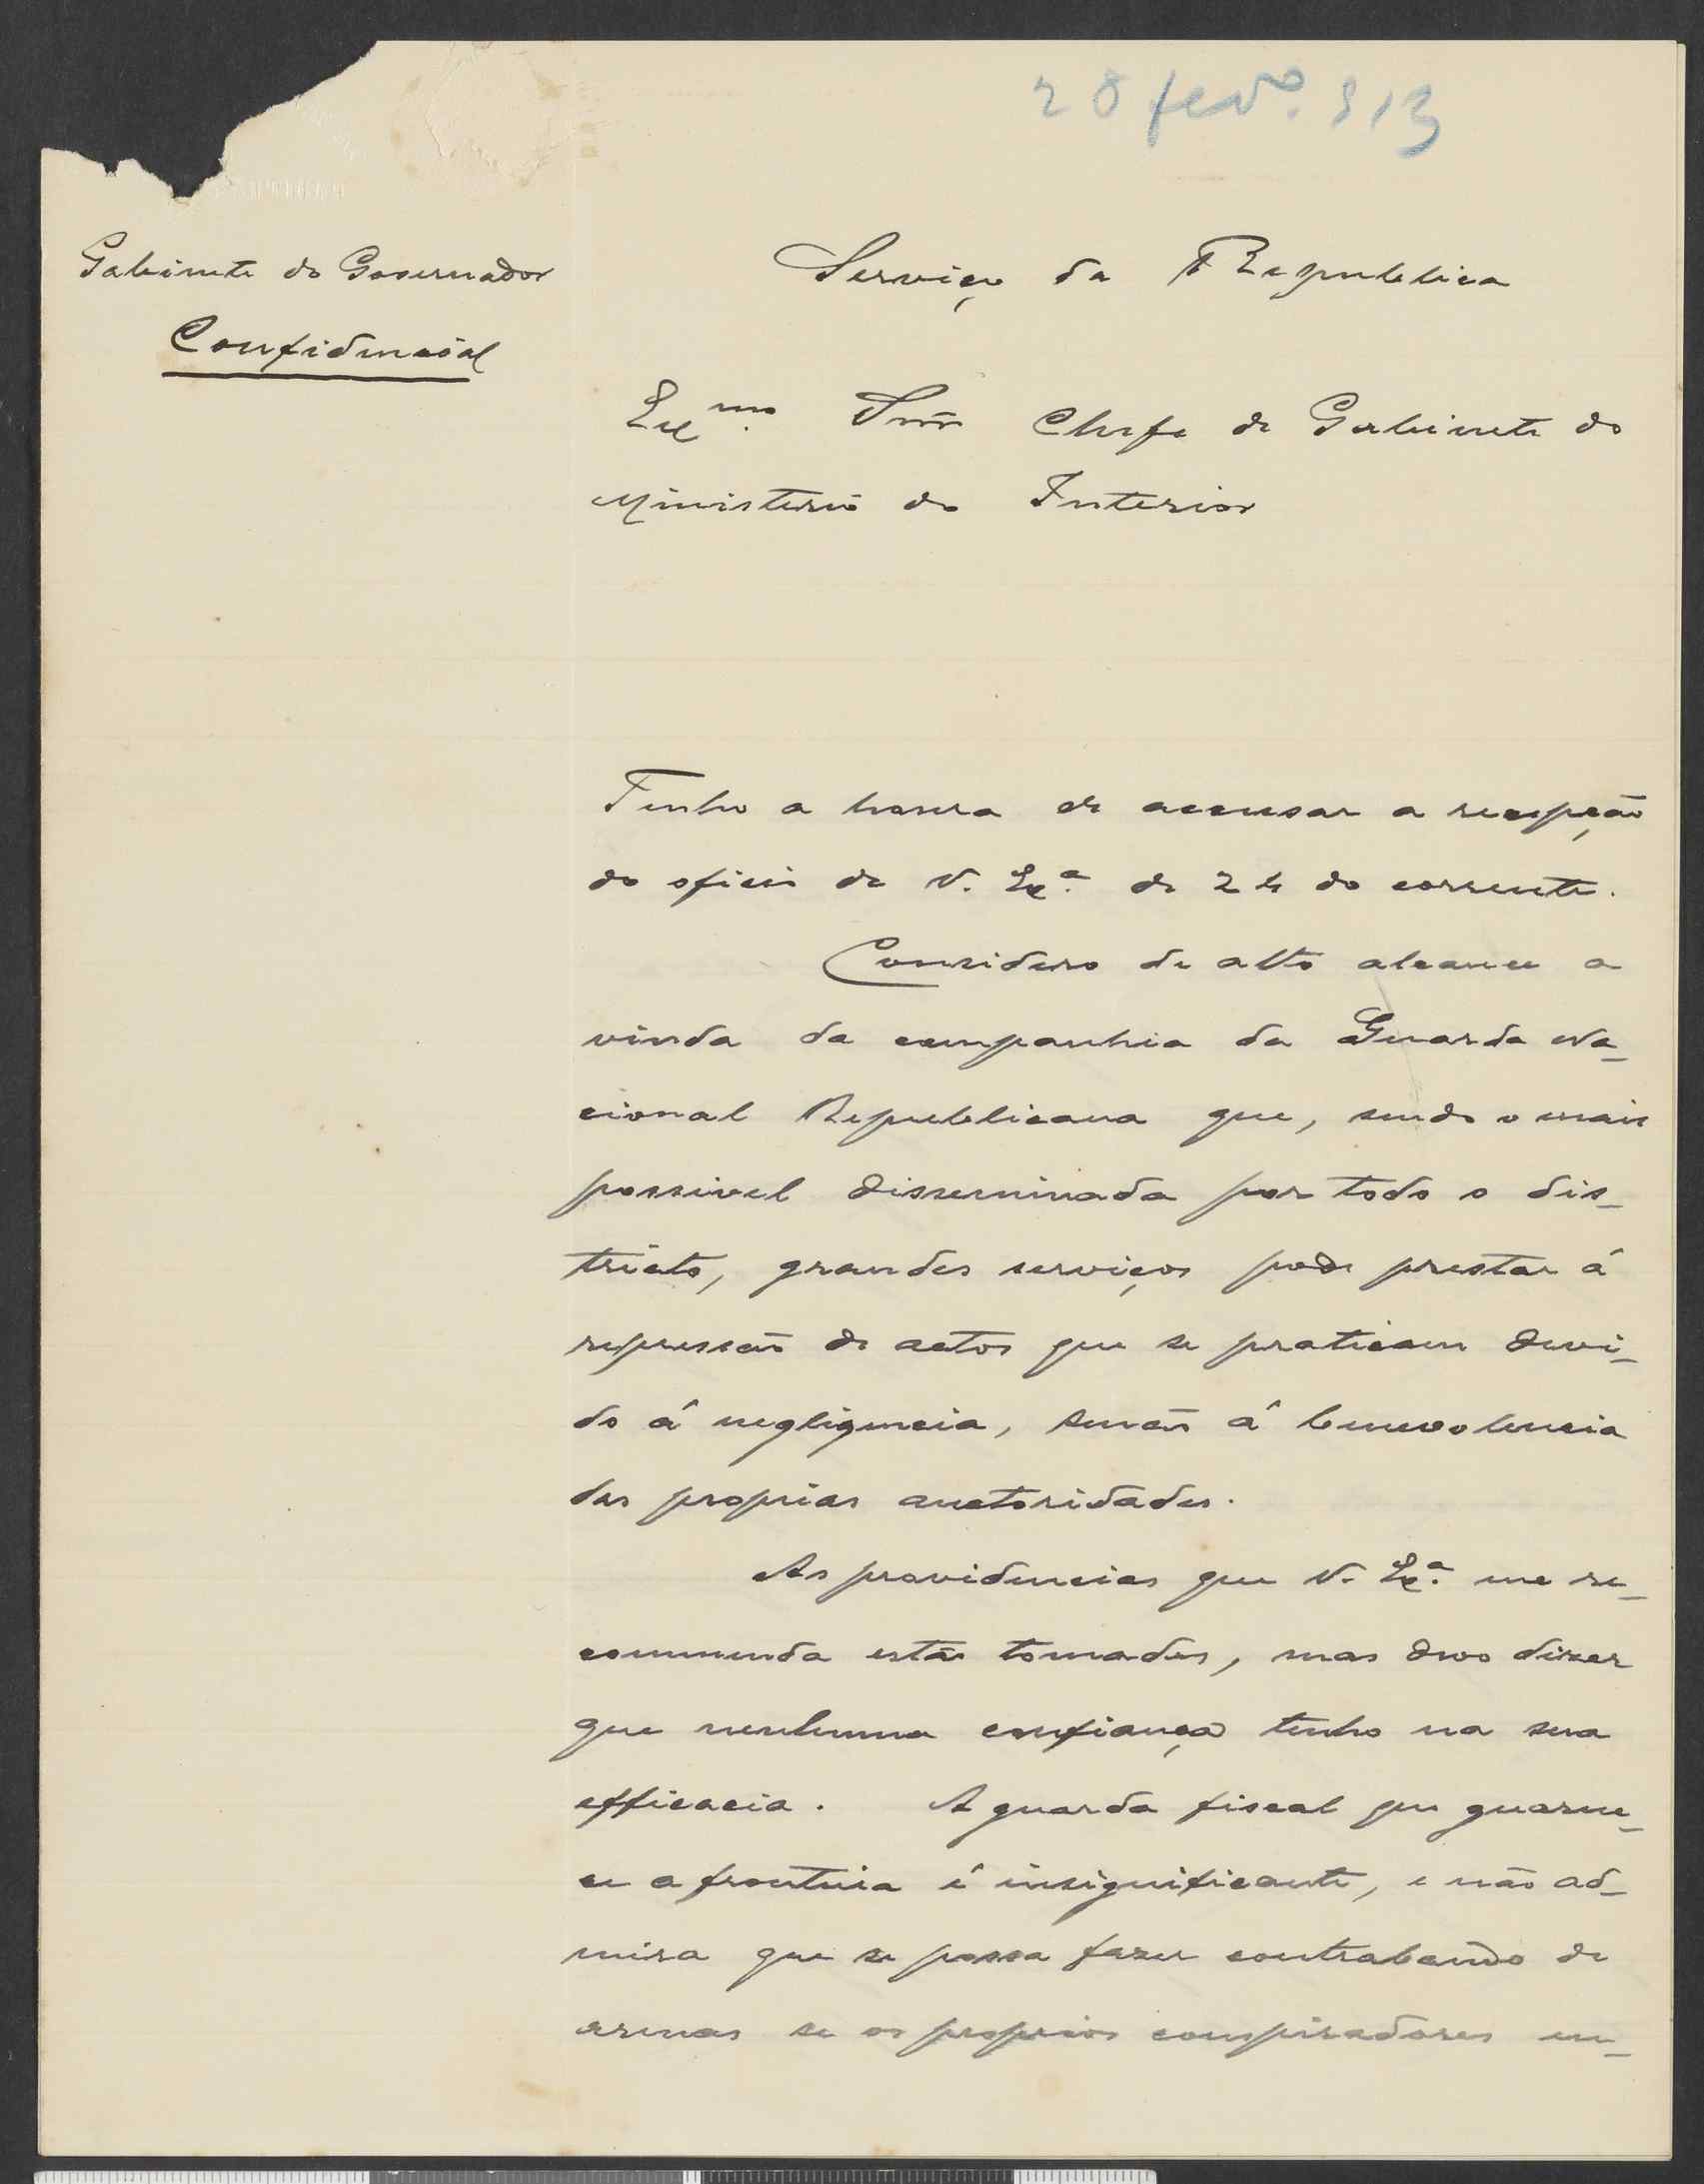 28 fev.º 913
Gabinete do Governador
Serviço da Republica
Confidencial
Ex.mo Snr Chefe de Gabinete do
Ministerio do Interior
Tenho a honra de accusar a recepção
do oficio de V. Ex.ª de 24 do corrente.
Considero de alto alcance a
vinda da companhia da Guarda Na_
cional Republicana que, sendo o mais
possivel disseminada por todo o dis_
tricto, grandes serviços pode prestar á
repressão de actos que se praticam devi_
do á negligencia, senão á benevolencia
das proprias auctoridades.
As providencias que V. Ex.ª me re_
commenda estão tomadas, mas devo dizer
que nenhuma confiança tenho na sua
efficacia. A guarda fiscal que guarne_
ce a fronteira é insignificante, e não ad_
mira que se possa fazer contrabando de
armas se os proprios conspiradores en_